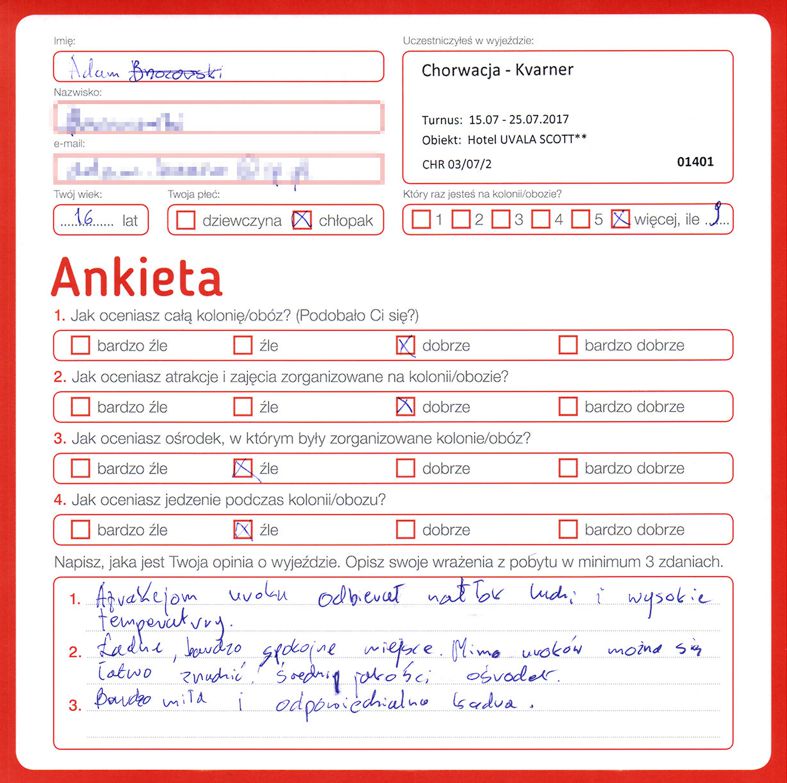 Imię:
Adam Brozovski
Uczestniczyłeś w wyjeździe:
Chorwacja - Kvarner
Turnus: 15.07 - 25.07.2017
Obiekt: Hotel UVALA SCOTT**
CHR 03/07/2
01401
Nazwisko:
e-mail:
Twój wiek:
16 lat
Twoja płeć:
dziewczyna chłopak
Który raz jesteś na kolonii/obozie?
1 2 3 4 5 więcej, ile 9
Ankieta
1. Jak oceniasz całą kolonię/obóz? (Podobało Ci się?)
bardzo źle źle dobrze bardzo dobrze
2. Jak oceniasz atrakcje i zajęcia zorganizowane na kolonii/obozie?
bardzo źle źle dobrze bardzo dobrze
3. Jak oceniasz ośrodek, w którym były zorganizowane kolonie/obóz?
bardzo źle źle dobrze bardzo dobrze
4. Jak oceniasz jedzenie podczas kolonii/obozu?
bardzo źle źle dobrze bardzo dobrze
Napisz, jaka jest Twoja opinia o wyjeździe. Opisz swoje wrażenia z pobytu w minimum 3 zdaniach.
1. Atrakcjom uroku odbierał natłok ludzi i wysokie
temperatury.
2. Ładne, bardzo spokojne miejsce. Mimo uroków można się
łatwo znudzić. Średniej jakości ośrodek.
3. Bardzo miła i odpowiedzialna kadra.